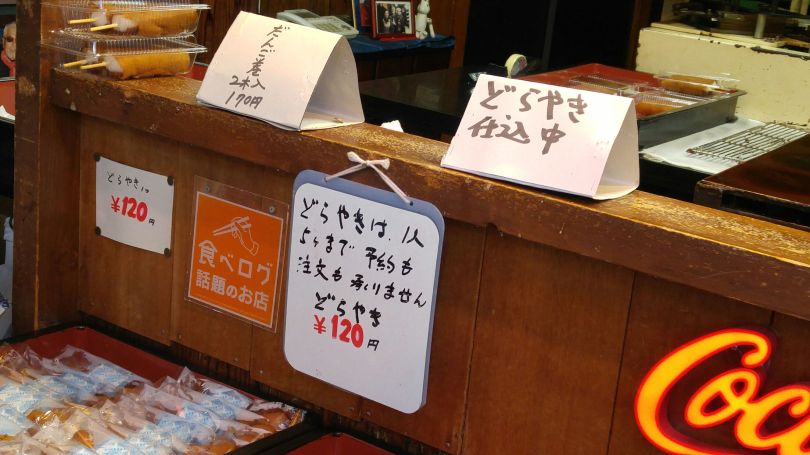 だんご巻
2本入
170円
どらやき
仕込中
どらやき
¥120円
食べログ
話題のお店
どらやきは、1人
5ヶまで 予約も
注文も承りません
どらやき
¥120円
Coca